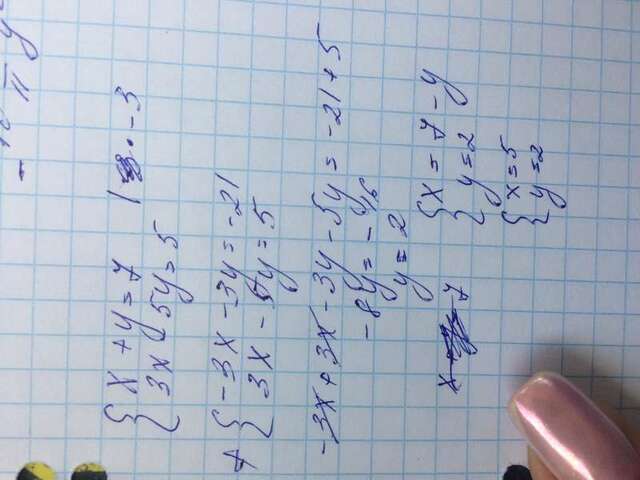 x + y = 7 | · -3
3x - 5y = 5
+ -3x - 3y = -21
3x - 5y = 5
-3x + 3x - 3y - 5y = -21 + 5
-8y = -16
y = 2
x = 7 - y
y = 2
x = 5
y = 2